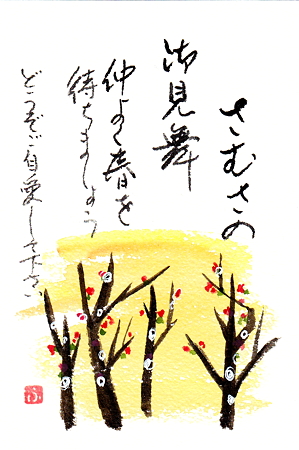 さむさの
御見舞
仲よく春を
待ちましょう
どうぞご自愛して下さい
ふ